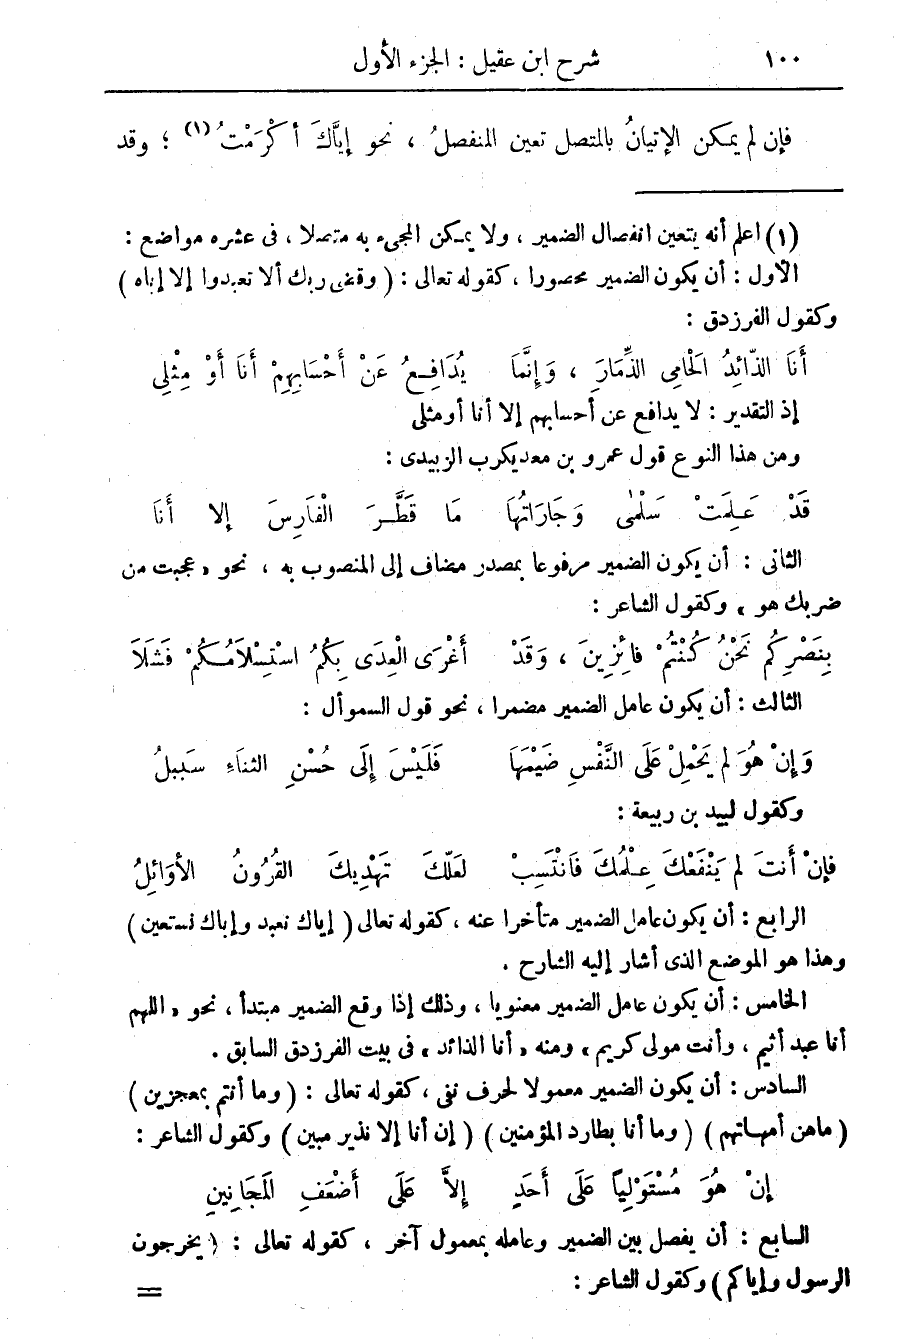 ١٠٠ شرح ابن عقيل : الجزء الأول
فإن لم يمكن الإتيانُ بالمتصل تعين المنفصلُ ، نحو إيَّاكَ أكْرَمْتُ (١) ؛ وقد
(١) اعلم أنه يتعين انفصال الضمير ، ولا يمكن المجىء به متصلا ، فى عشره مواضع :
الأول : أن يكون الضمير محصورا ، كقوله تعالى : ( وقضى ربك ألا تعبدوا إلا إياه )
وكقول الفرزدق :
أَنَا الذَّائِدُ الْحَامِى الذِّمَارَ ، وَإِنَّمَا يُدَافِعُ عَنْ أَحْسَابِهِمْ أَنَا أَوْ مِثْلِى
إذ التقدير : لا يدافع عن أحسابهم إلا أنا أو مثلى
ومن هذا النوع قول عمرو بن معديكرب الزبيدى :
قَدْ عَلِمَتْ سَلْمَى وَجَارَاتُهَا مَا قَطَّرَ الْفَارِسَ إلا أَنَا
الثانى : أن يكون الضمير مرفوعا بمصدر مضاف إلى المنصوب به ، نحو « عجبت من
ضربك هو » وكقول الشاعر :
بِنَصْرِكُم نَحْنُ كُنْتُمْ فائِزِينَ ، وَقَدْ أَغْرَى الْعِدَى بِكُمُ اسْتِسْلاَمُكُمْ فَشَلاَ
الثالث : أن يكون عامل الضمير مضمرا ، نحو قول السموأل :
وَإِنْ هُوَ لم يَحْمِلْ عَلَى النَّفْسِ ضَيْمَهَا فَلَيْسَ إِلَى حُسْنِ الثناءِ سَبِيلُ
وكقول لبيد بن ربيعة :
فإنْ أَنتَ لم يَنْفَعْكَ عِلْمُكَ فَانْتَسِبْ لعَلَّكَ تَهْدِيكَ القُرُونُ الأوَائِلُ
الرابع : أن يكون عامل الضمير متأخرا عنه ، كقوله تعالى ( إياك نعبد وإياك نستعين )
وهذا هو الموضع الذى أشار إليه الشارح .
الخامس : أن يكون عامل الضمير معنويا ، وذلك إذا وقع الضمير مبتدأ ، نحو « اللهم
أنا عبد أثيم ، وأنت مولى كريم » ومنه « أنا الذائد » فى بيت الفرزدق السابق .
السادس : أن يكون الضمير معمولا لحرف نفى ، كقوله تعالى : ( وما أنتم بمعجزين )
( ماهن أمهاتهم ) ( وما أنا بطارد المؤمنين ) ( إن أنا إلا نذير مبين ) وكقول الشاعر :
إِنْ هُوَ مُسْتَوْلِياً عَلَى أَحَدٍ إِلاَّ عَلَى أَضْعَفِ الْمَجَانِينِ
السابع : أن يفصل بين الضمير وعامله بمعمول آخر ، كقوله تعالى : ( يخرجون
الرسول وإياكم ) وكقول الشاعر :
=